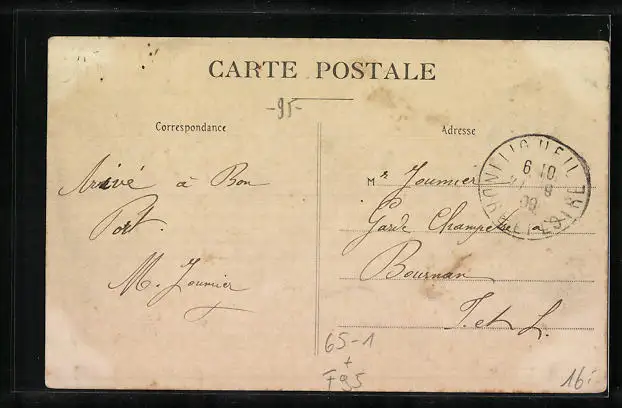 CARTE POSTALE
-95-
Correspondance
Arrivé à Bon
Port.
M. Joumier
Adresse
Mr Joumier
Garde Champetre à
Bournan
I. et L.
6 10
8
09
65-1
+
F95
16: